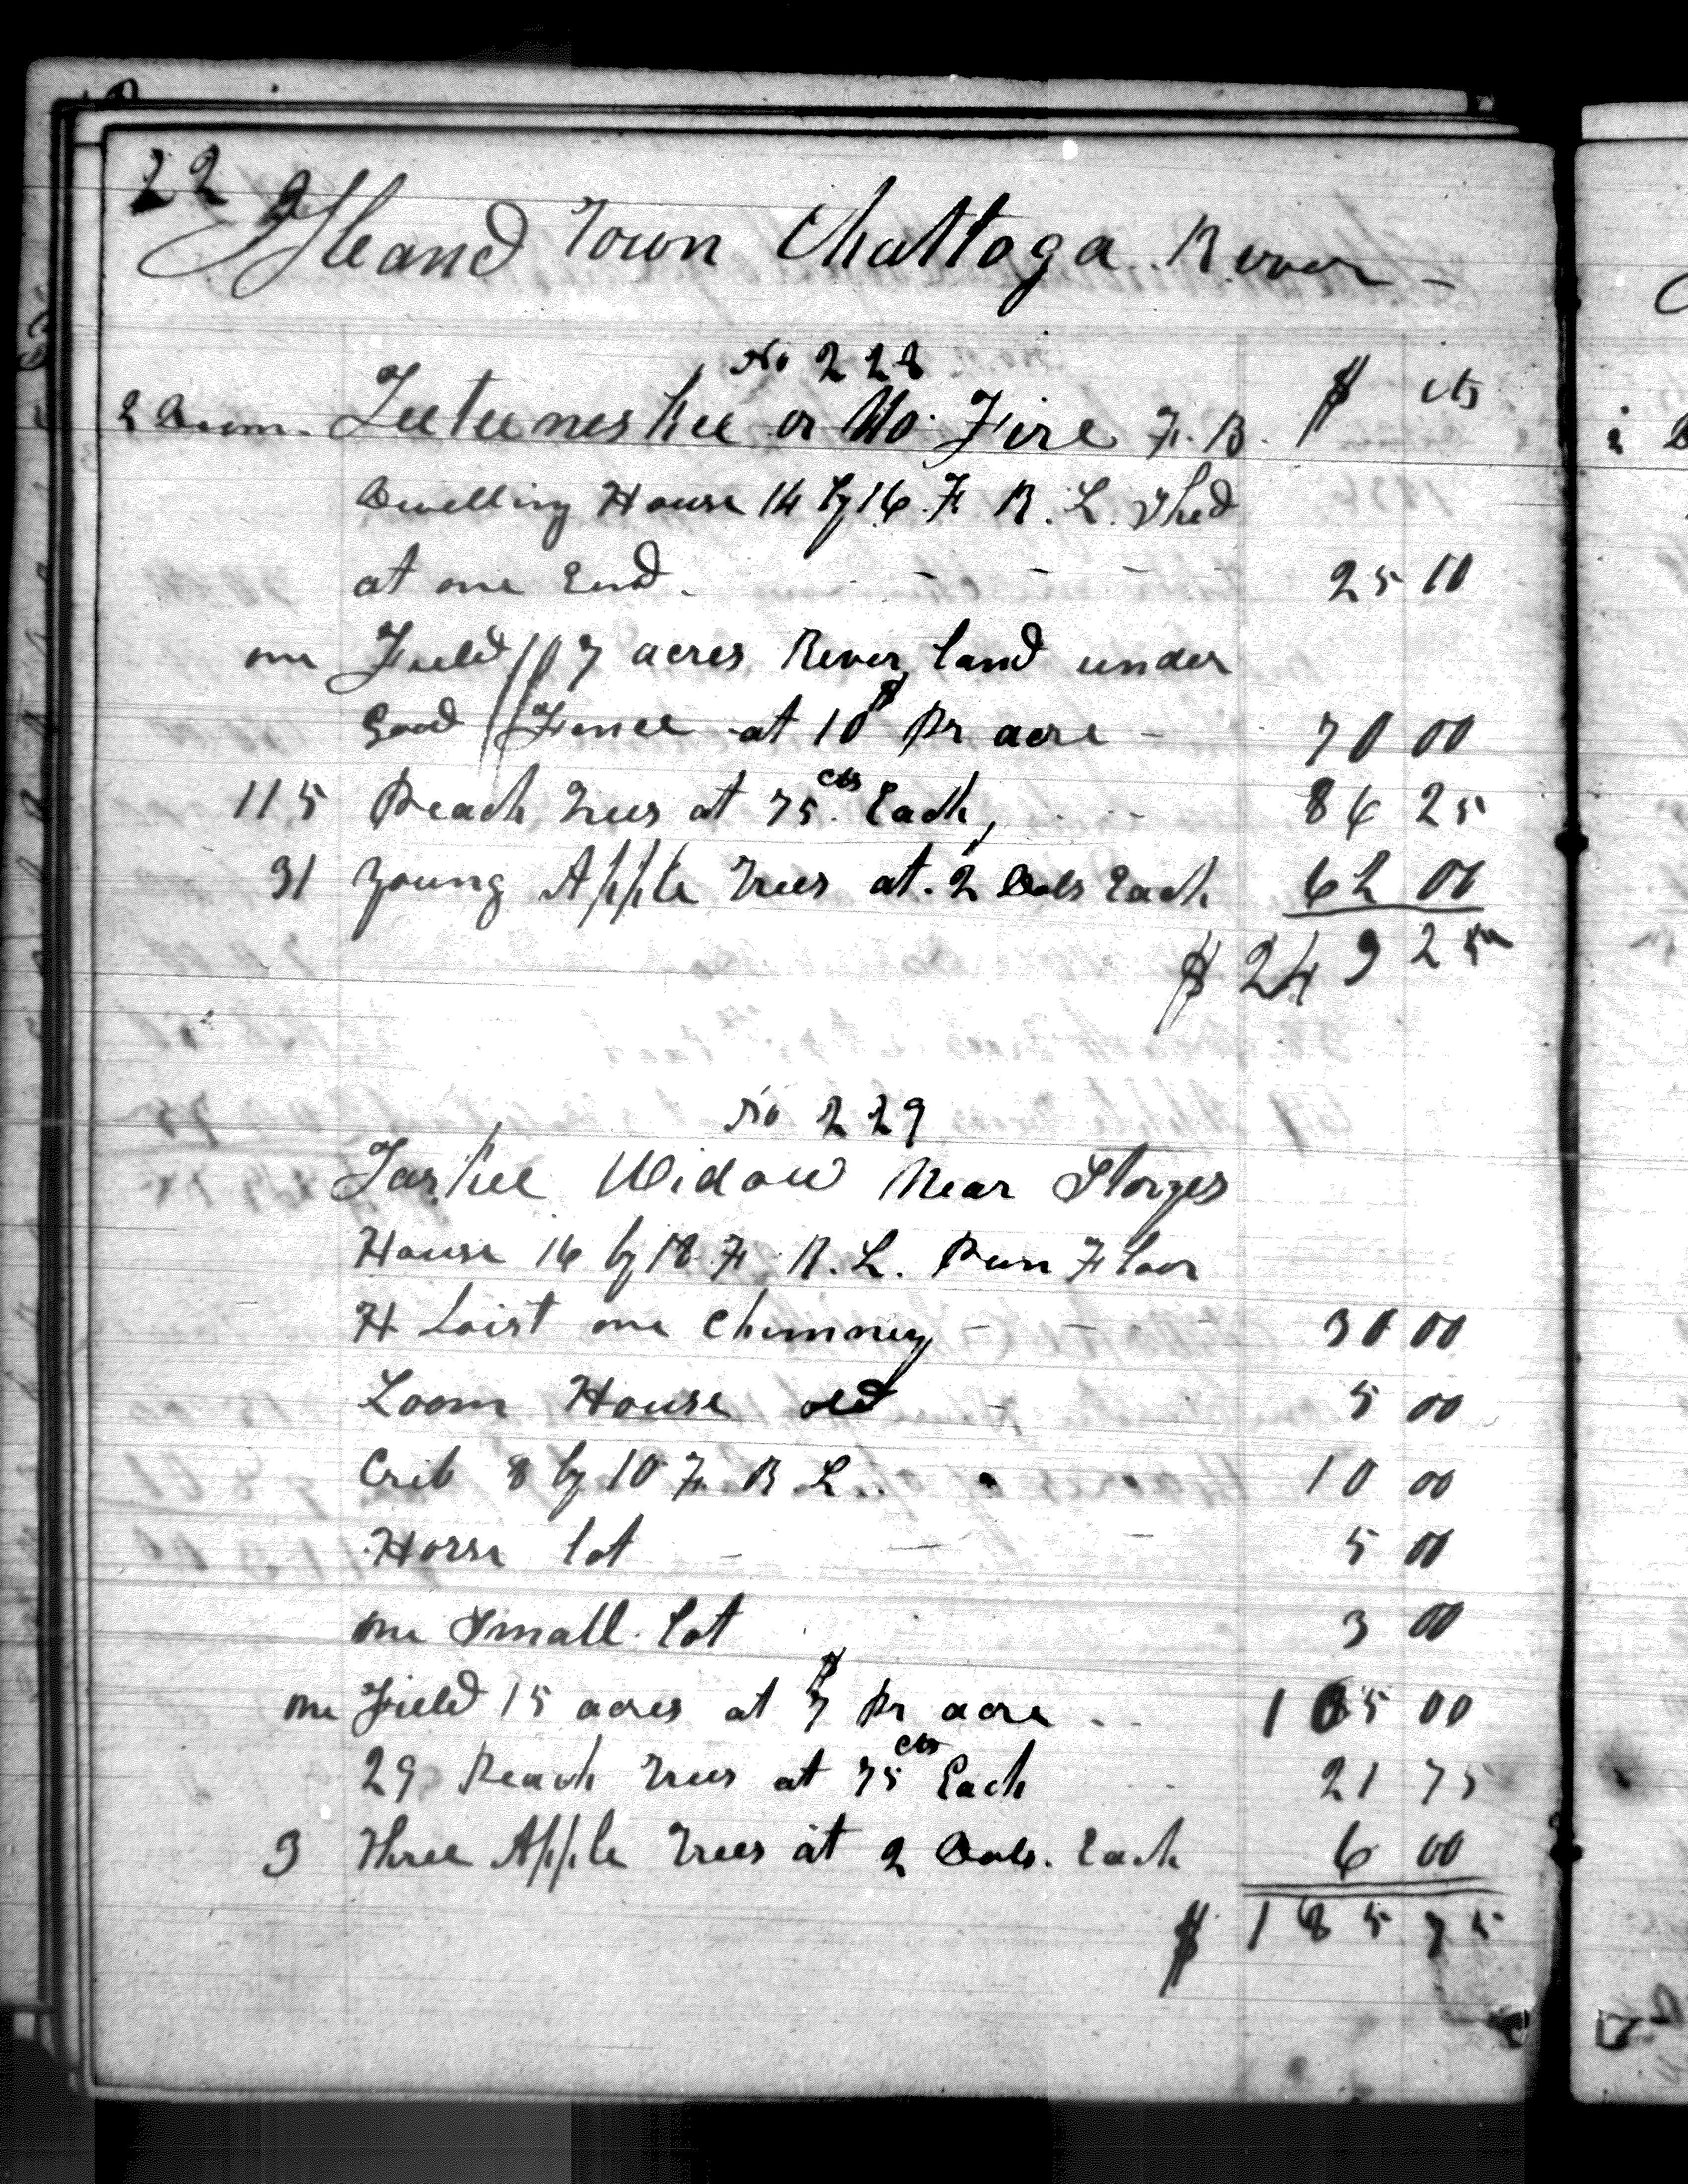 22
Island Town Chattoga River -
No 228
$ cts
Teeteeneskee or No Fire F. B.
Dwelling House 14 by 16 Ft R. L. Shed
at one End. - - - - 25 10
one Field 7 acres River land under
Good Fence at 10 $ Pr acre - 70 00
115 Peach Trees at 75 cts Each, 86 25
31 Young Apple Trees at 2 Dols Each 62 00
$ 249 25
No 229
Taskee Widow Near Storges
House 16 by 18 Ft R. L. Pun Floor
H Loist one Chimney - - - 30 00
Loom House old - 5 00
Crib 8 by 10 Ft R L. 10 00
Horse lot - - - 5 00
one Small lot 3 00
one Field 15 acres at $ 7 Pr acre - - 105 00
29 Peach Trees at 75 cts Each 21 75
3 Three Apple Trees at 2 Dols. Each 6 00
$ 185 75